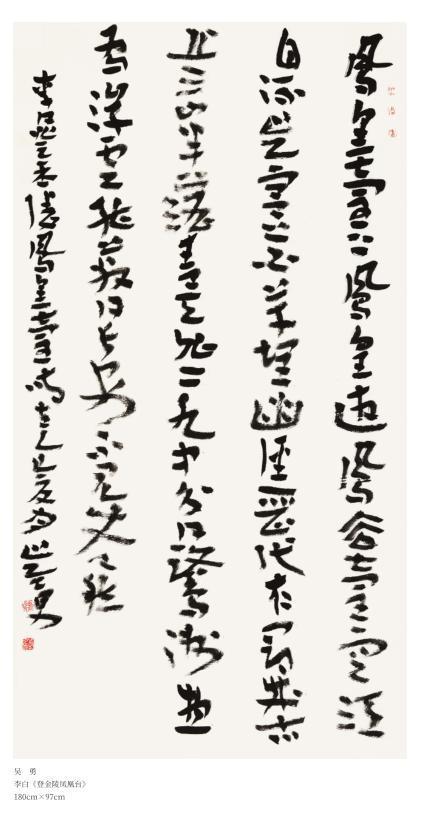 鳳皇臺上鳳皇遊鳳去臺空江
自流吳宮花草埋幽徑晉代衣冠成古
丘三山半落青天外二水中分白鷺洲總
為浮雲能蔽日長安不見使人愁
李白登金陵鳳皇臺
吴 勇
李白《登金陵凤凰台》
180cm×97cm